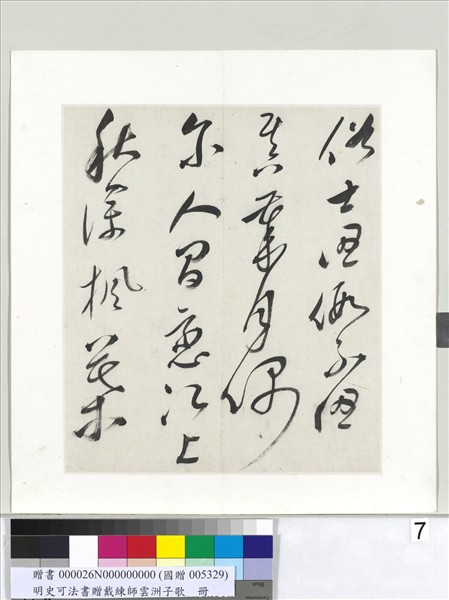 俗士假不
真身偶
尔人間江上
秋深楓葉
7
贈書 000026N000000000 (國贈 005329)
明史可法書贈戴練師雲洲子歌 冊